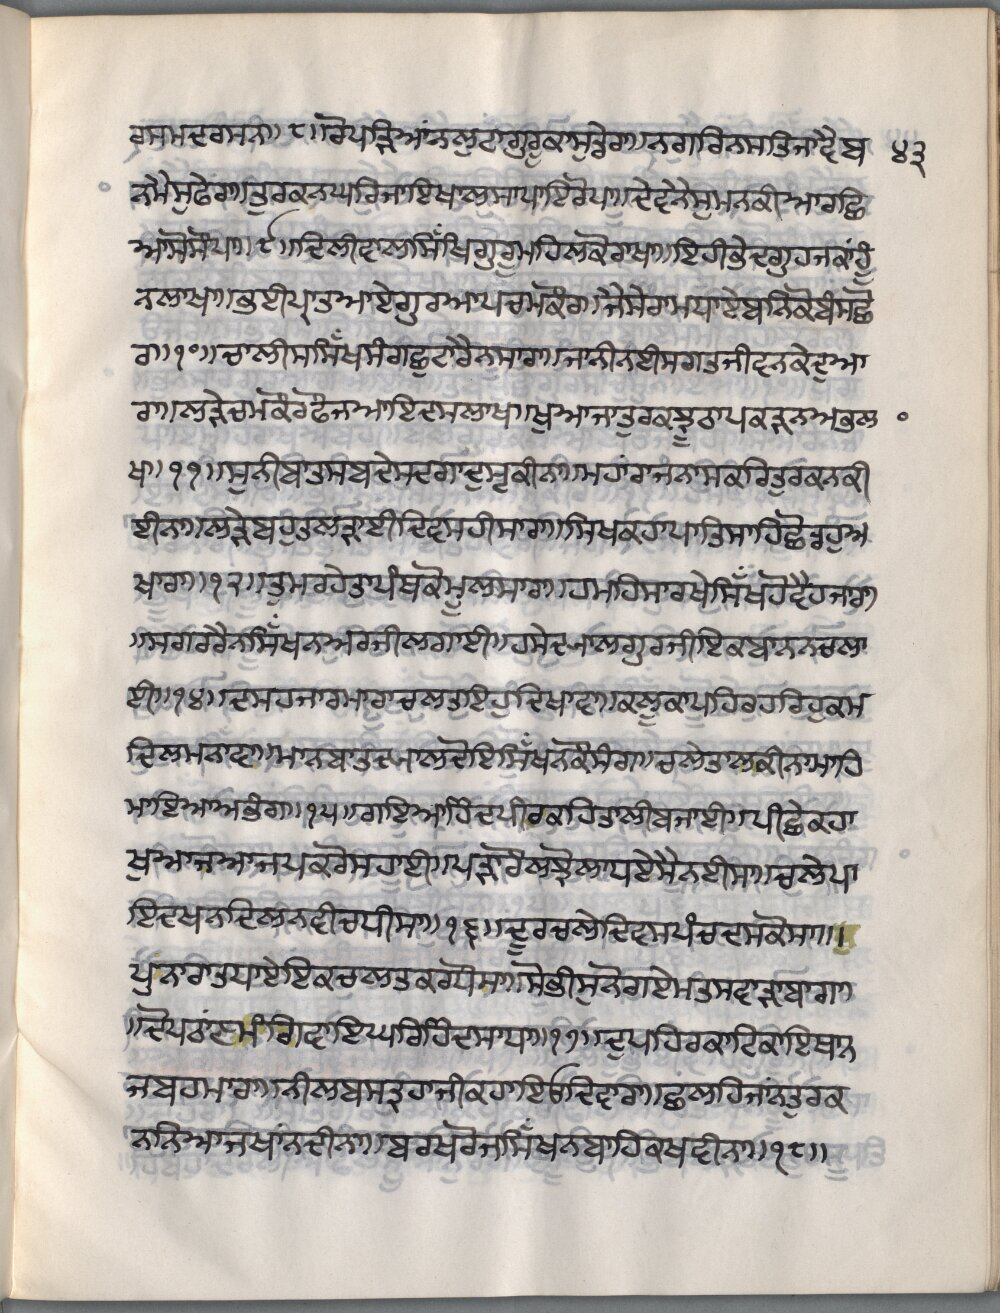 ਰਸਮਦਰਸਨ॥੮॥ਰੋਪੜਿਆਂਨਲੁਟਾਗੁਰੂਕਾਸੁਤੁਰਾ॥ਨਗਰਿਨਸਤਿਜਾਵੈਬ ੪੩
ਨਮੈਸੁਫੇਰਾ॥ਤੁਰਕਨਘਰਿਜਾਇਖਾਲਸਾਪਾਇਰੋਪਾ॥ਦੇਵਨੇਸੁਮਨਕੀਆਰਛਿ
ਅਸੋਸੋਪਾ॥੯॥ਦਿਲੀਵਾਲਸਿੰਘਿਗੁਰੂਮਹਿਲਕੋਰਾਖਾ॥ਇਹੀਭੇਦਗੁਹਜਕਾਂਹੂੰ
ਨਲਾਖਾ॥ਭਈਪ੍ਰਾਤਆਏਗੁਰਆਪਚਮਕੌਰਾ॥ਜੈਸੇਰਾਮਧਾਏਬਨਿਕੋਬੰਸਛੋ
ਰਾ॥੧੦॥ਚਾਲੀਸਸਿੰਘਸੰਗਛੁਟਾਰੈਨਸਾਰਾ॥ਜਾਨੀਨਈਸਗਤਜੀਵਨਕੇਦੁਆ
ਰਾ॥ਲੜੇਚਮਕੌਰਫੌਜਆਇਦਸਲਾਖਾ॥ਖੁਆਜਾਤੁਰਕਝੂਠਾਪਕੜਨਅਭਲ
ਖਾ॥੧੧॥ਸੁਨੀਬਾਤਸਬਦੇਸਦਗਾਦੁਸ੍ਟਕੀਨਾ॥ਮਹਾਂਰਾਜਨਾਸਕਰਿਤੁਰਕਨਕੀ
ਈਨਾ॥ਲੜੇਬਹੁਤਲੜਾਈਦਿਵਸਹੀਸਾਰਾ॥ਸਿਖਕਹਾਪਾਤਿਸਾਹਿਛੋਡਹੁਅ
ਖਾਰਾ॥੧੨॥ਤੁਮਰਹੇਤਪੰਥਕੋਮੂਲਸਾਰਾ॥ਹਮਹਿਸਾਰਖੇਸਿੰਘਹੋਵੈਹਜਾਰਾ
॥ਸਗਰਰੈਨਸਿੰਘਨਅਰਜੀਲਗਾਈ॥ਹਸੇਦਆਲਗੁਰਜੀਇਕਬਾਨਨਚਲਾ
ਈ॥੧੪॥ਦਸਹਜਾਰਮਾਰਾਚਲਤੁਇਹੁਦਿਖਾਵਾ॥ਕਲੂਕਾਪਹਿਰਹਰਿਹੁਕਮ
ਦਿਲਮਨਾਵਾ॥ਮਾਨਬਾਤਦਆਲਦੋਇਸਿੰਘਨਕੋਸੰਗਾ॥ਚਲੇਤਾਲਕੀਨਮਾਹਿ
ਮਾਇਆਅਭੰਗਾ॥੧੫॥ਗਇਆਹਿੰਦਪੀਰਕਹਿਤਾਲੀਬਜਾਈ॥ਪੀਛੇਕਹਾ
ਖੁਆਜਆਜਪਕਰੋਸਹਾਈ॥ਪੜਾਰੌਲਝੌਲਾਪਏਸੈਨਈਸਾ॥ਚਲੇਪਾ
ਇਦਖਨਦਿਲਨਵੀਚਪੀਸਾ॥੧੬॥ਦੂਰਚਲੇਦਿਵਸਪੰਚਦਸਕੋਸਾ॥।
ਪੁਨਾਰਾਤਧਾਏਇਕਚਲਤਕਰਪੋਸਾ॥ਸੋਭੀਸੁਨੋਗਏਮਤਸਵਾੜਾਬਾਗਾ
॥ਦੋਪਠਾਂਣਮੰਗਿਵਾਇਘਰਿਹਿੰਦਸਾਧਾ॥੧੭॥ਦੁਪਹਿਰਕਾਟਿਕਾਇਥਾਨ
ਜਬਹਮਾਰਾ॥ਨੀਲਬਸਤ੍ਰਹਾਜੀਕਹਾਇਓਦਿਵਾਰਾ॥ਛਲਹਿਜਾਂਨਤੁਰਕ
ਨਨਿਆਜਖਾਂਨਦੀਨਾ॥ਬਰਖਰੋਜਸਿੰਘਨਬਾਹਿਕਖਵੀਨਾ॥੧੮॥